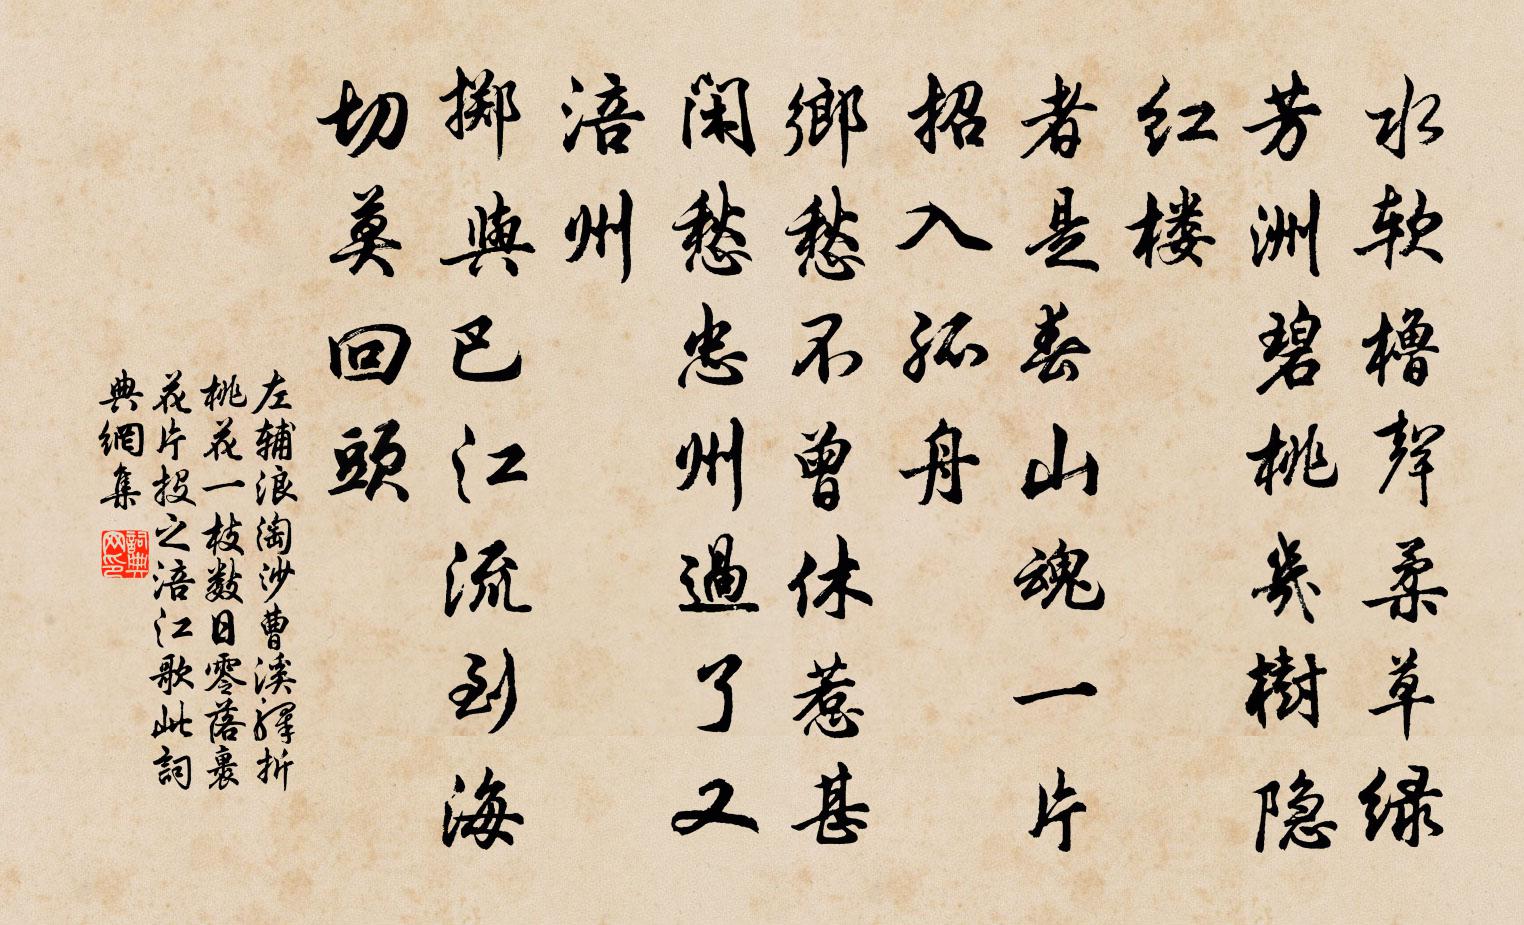 水软橹聲柔草绿
芳洲碧桃幾樹隐
红楼
者是春山魂一片
招入孤舟
鄉愁不曾休惹甚
闲愁忠州過了又
涪州
掷與巴江流到海
切莫回頭
左辅浪淘沙曹溪驿折
桃花一枝数日零落裹
花片投之涪江歌此詞
典網集
詞典网印